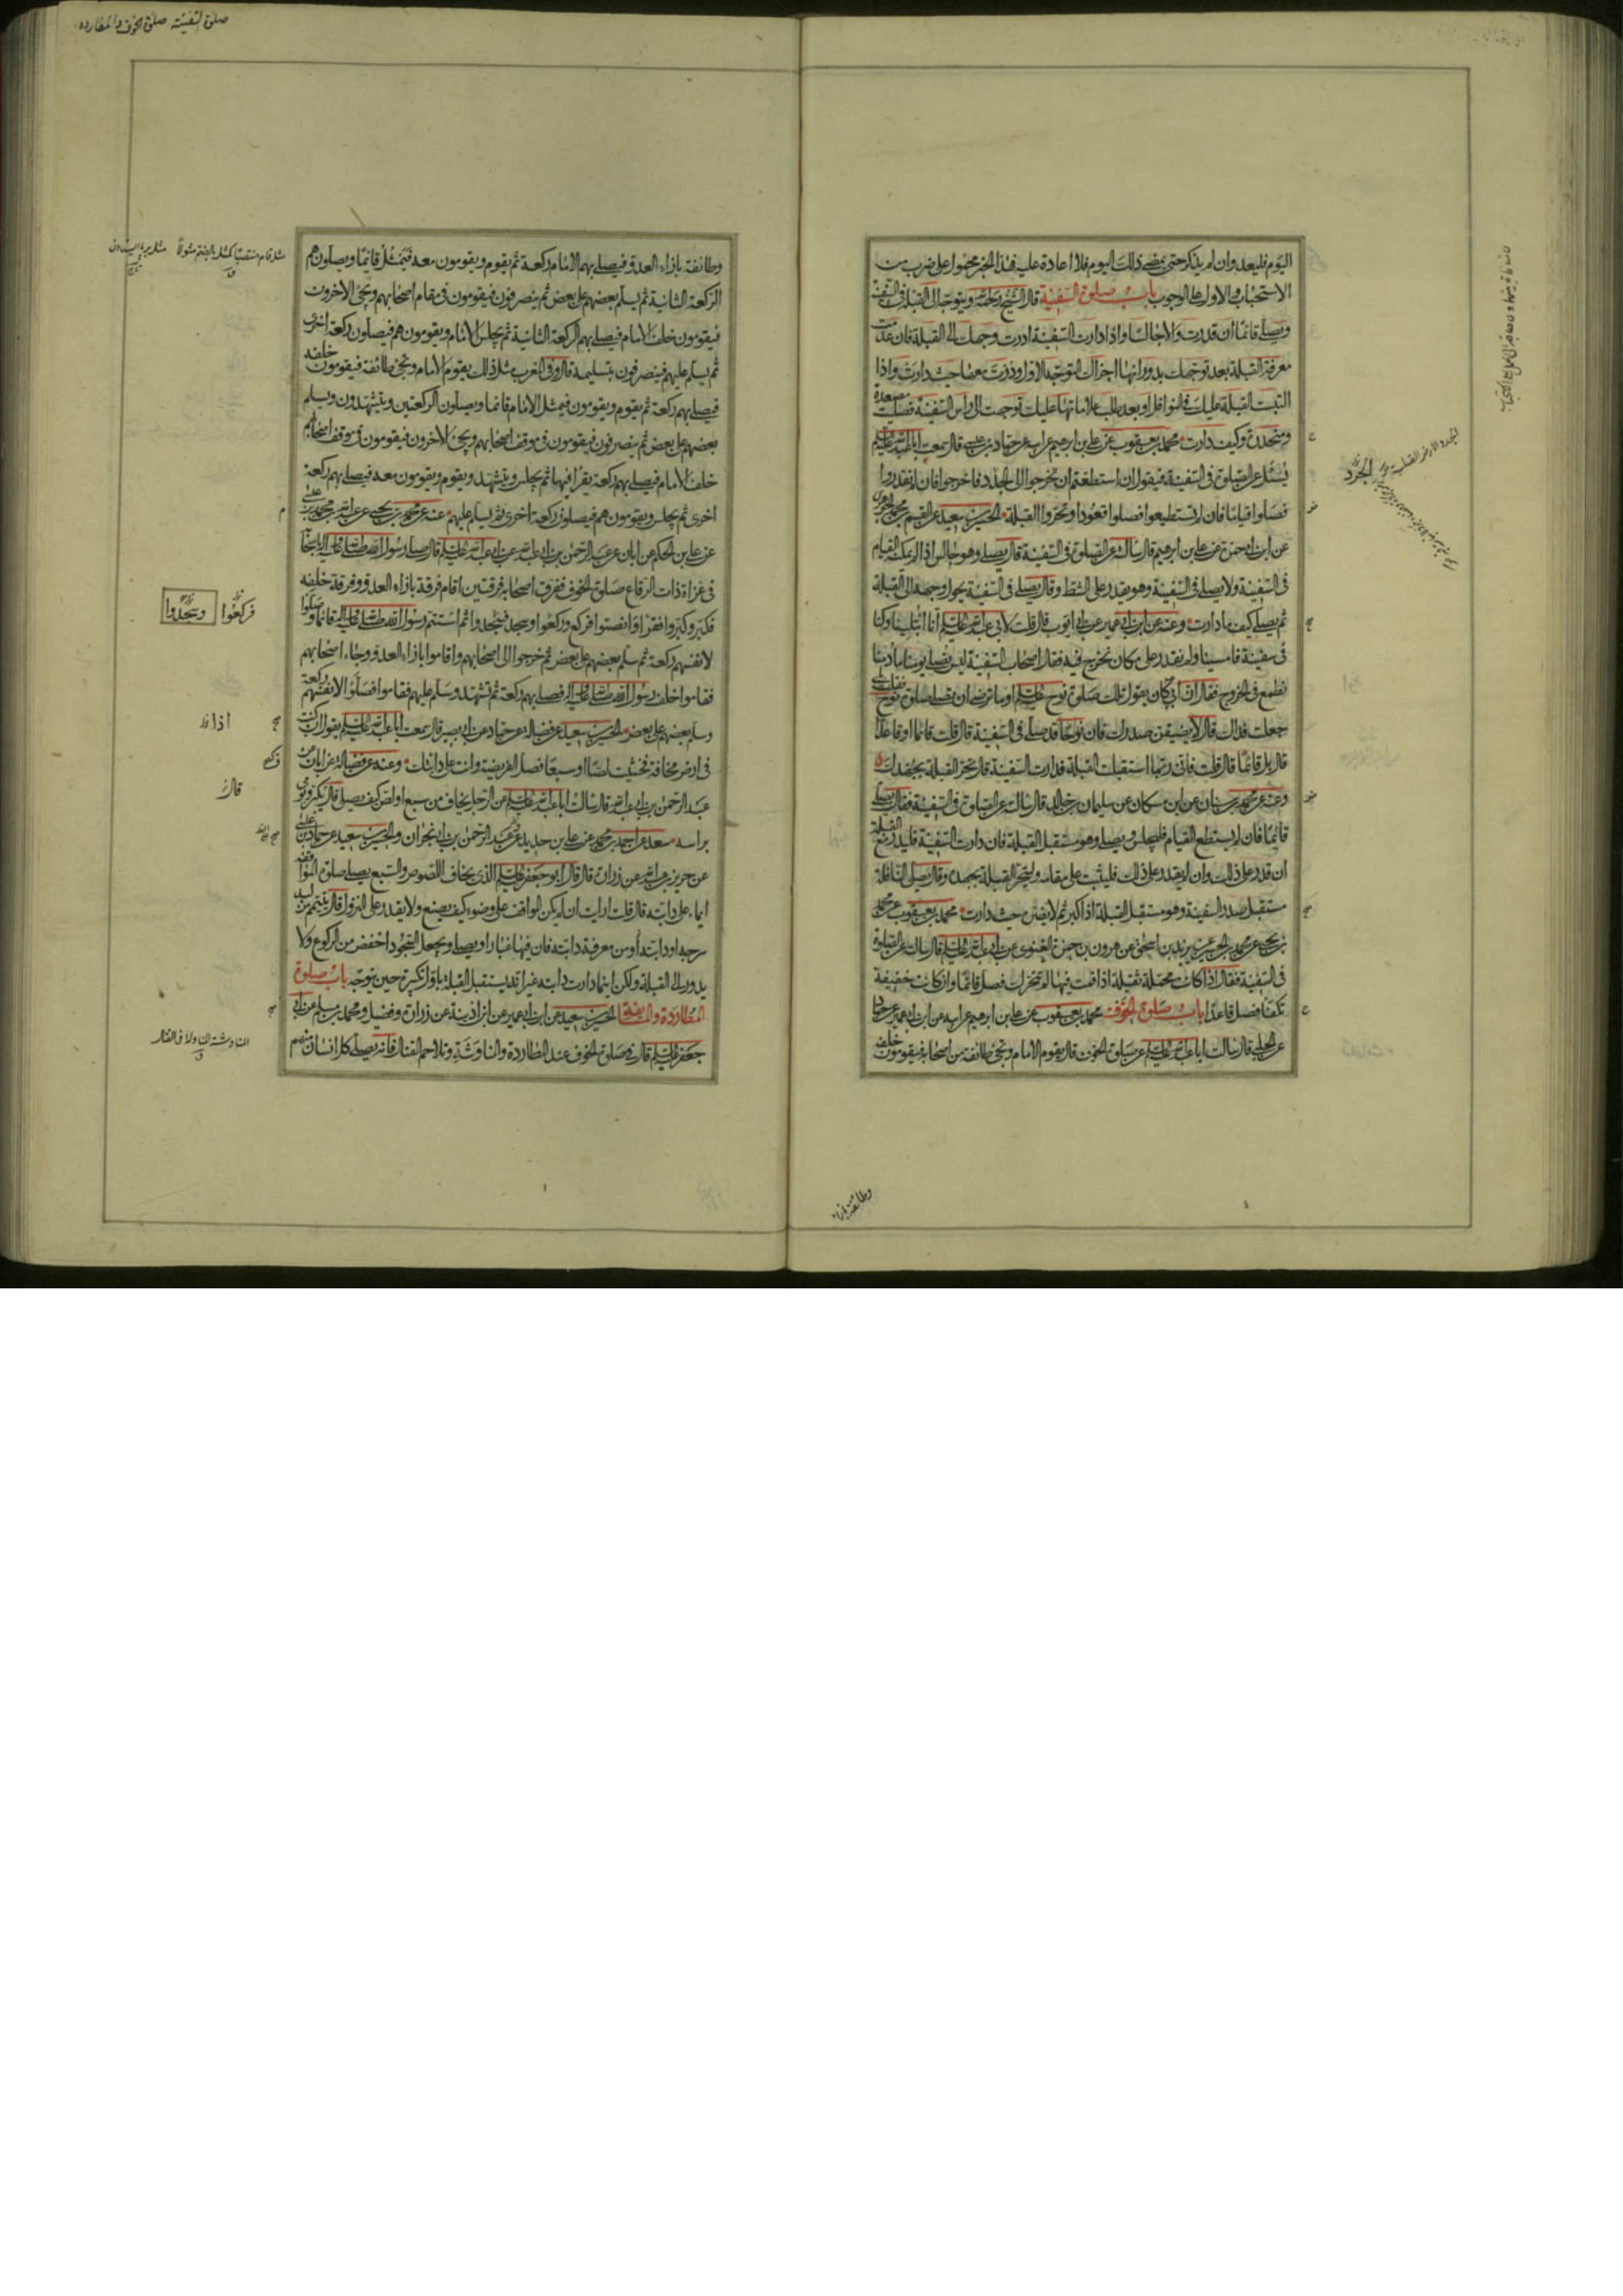 اليوم فليعد وان لم يذكر حتى يمضي ذلك اليوم فلا اعادة عليه فهذا الخبر محمول على ضرب من
الاستحباب والاول على الوجوب باب صلوة السفينة قال الشيخ رحمه الله ويتوجه الى القبلة في السفينة
ويصلي قائما ان قدرت والا جالسا واذا دارت السفينة ادرت وجهك الى القبلة فان عدمت
معرفة القبلة بعد توجهك بدورانها اجزاك التوجه الاول ودرت معها حيث دارت واذا
التبست القبلة عليك في النوافل او بعد طلب علاماتها عليك توجهت الى راس السفينة فصليت مصعدة
ومنحدرة وكيف دارت محمد بن يعقوب عن علي بن ابرهيم عن ابيه عن حماد بن عيسى قال سمعت ابا عبد الله عليه السلم
يسئل عن الصلوة في السفينة فيقول ان استطعتم ان تخرجوا الى الجدد فاخرجوا فان لم تقدروا
فصلوا قياما فان لم تستطيعوا فصلوا قعودا وتحروا القبلة الحسين بن سعيد عن القسم بن محمد الجوهري
عن ابن ابي حمزة عن علي بن ابرهيم قال سالته عن الصلوة في السفينة قال يصلي وهو جالس اذا لم يمكنه القيام
في السفينة ولا يصلي في السفينة وهو يقدر على الشط وقال يصلي في السفينة يحول وجهه الى القبلة
ثم يصلي كيف ما دارت وعنه عن ابن ابي عمير عن ابي ايوب قال قلت لابي عبد الله عليه السلم انا ابتلينا وكنا
في سفينة فامسينا ولم نقدر على مكان نخرج فيه فقال اصحاب السفينة ليس نصلي يومنا ما دمنا
نطمع في الخروج فقال ان ابي كان يقول تلك صلوة نوح عليه السلم او ما ترضى ان تصلي صلوة نوح فقلت بلى
جعلت فداك قال لا يضيقن صدرك فان نوحا قد صلى في السفينة قال قلت قائما او قاعدا
قال بل قائما قال قلت فاني ربما استقبلت القبلة فدارت السفينة قال تحر القبلة بجهدك
وعنه عن محمد بن سنان عن ابن مسكان عن سليمان بن خالد قال سالته عن الصلوة في السفينة فقال يصلي
قائما فان لم يستطع القيام فليجلس ويصلي وهو مستقبل القبلة فان دارت السفينة فليدر مع القبلة
ان قدر على ذلك وان لم يقدر على ذلك فليثبت على مقامه وليتحر القبلة بجهده وقال يصلي النافلة
مستقبل صدر السفينة وهو مستقبل القبلة اذا كبر ثم لا يضره حيث دارت محمد بن يعقوب عن محمد
بن يحيى عن محمد بن الحسين عن يزيد بن اسحق عن هرون بن حمزة الغنوي عن ابي عبد الله عليه السلم قال سالته عن الصلوة
في السفينة فقال اذا كانت محملة ثقيلة اذا قمت فيها لم تتحرك فصل قائما وان كانت خفيفة
تكفا فصل قاعدا باب صلوة الخوف محمد بن يعقوب عن علي بن ابرهيم عن ابيه عن ابن ابي عمير عن حماد
عن الحلبي قال سالت ابا عبد الله عليه السلم عن صلوة الخوف قال يقوم الامام وتجئ طائفة من اصحابه فيقومون خلفه
الجرد
وطائفة بازاء
صلوة السفينة صلوة الخوف والمطارده
وطائفة بازاء العدو فيصلي بهم الامام ركعة ثم يقوم ويقومون معه فيمثل قائما ويصلون هم
الركعة الثانية ثم يسلم بعضهم على بعض ثم ينصرفون فيقومون في مقام اصحابهم ويجئ الاخرون
فيقومون خلف الامام فيصلي بهم الركعة الثانية ثم يجلس الامام ويقومون هم فيصلون ركعة اخرى
ثم يسلم عليهم فينصرفون بتسليمه قال وفي المغرب مثل ذلك يقوم الامام وتجئ طائفة فيقومون خلفه
فيصلي بهم ركعة ثم يقوم ويقومون فيمثل الامام قائما ويصلون الركعتين ويتشهدون ويسلم
بعضهم على بعض ثم ينصرفون فيقومون في موقف اصحابهم ويجئ الاخرون فيقومون في موقف اصحابهم
خلف الامام فيصلي بهم ركعة يقرا فيها ثم يجلس ويتشهد ويقوم ويقومون معه فيصلي بهم ركعة
اخرى ثم يجلس ويقومون هم فيصلون ركعة اخرى ثم يسلم عليهم عنه عن محمد بن يحيى عن عبد الله بن محمد بن عيسى
عن علي بن الحكم عن ابان عن عبد الرحمن بن ابي عبد الله عن ابي عبد الله عليه السلم قال صلى رسول الله صلى الله عليه واله باصحابه
في غزاة ذات الرقاع صلوة الخوف ففرق اصحابه فرقتين اقام فرقة بازاء العدو وفرقة خلفه
فكبر وكبروا فقرا وانصتوا فركع وركعوا وسجد فسجدوا ثم استتم رسول الله صلى الله عليه واله قائما وصلوا
لانفسهم ركعة ثم سلم بعضهم على بعض ثم خرجوا الى اصحابهم واقاموا بازاء العدو وجاء اصحابهم
فقاموا خلف رسول الله صلى الله عليه واله فصلى بهم ركعة ثم تشهد وسلم عليهم فقاموا فصلوا لانفسهم ركعة
وسلم بعضهم على بعض الحسين بن سعيد عن فضالة عن حماد عن ابي بصير قال سمعت ابا عبد الله عليه السلم يقول ان كنت
في ارض مخافة فخشيت لصا او سبعا فصل الفريضة وانت على دابتك وعنه عن فضالة عن ابان عن
عبد الرحمن بن ابي عبد الله قال سالت ابا عبد الله عليه السلم عن الرجل يخاف من سبع او لص كيف يصلي قال يكبر ويومى
براسه سعد عن احمد بن محمد عن علي بن حديد وعن عبد الرحمن بن ابي نجران والحسين بن سعيد عن حماد بن عيسى
عن حريز بن عبد الله عن زرارة قال قال ابو جعفر عليه السلم الذي يخاف اللصوص والسبع يصلي صلوة المواقفة
ايماء على دابته قال قلت ارايت ان لم يكن المواقف على وضوء كيف يصنع ولا يقدر على النزول قال يتيمم من لبد
سرجه او دابته او من معرفة دابته فان فيها غبارا ويصلي ويجعل السجود اخفض من الركوع ولا
يدور الى القبلة ولكن اينما دارت دابته غير انه يستقبل القبلة باول تكبيرة حين يتوجه باب صلوة
المطاردة والمسايفة الحسين بن سعيد عن ابن ابي عمير عن ابن اذينة عن زرارة وفضيل ومحمد بن مسلم عن ابي
جعفر عليه السلم قال في صلوة الخوف عند المطاردة والمناوشة وتلاحم القتال فانه يصلي كل انسان منهم
فركعوا وسجدوا
اذا
قال